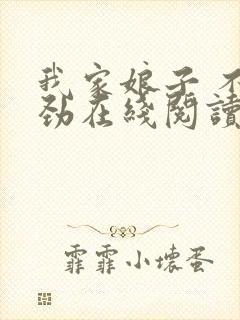 我家娘子 不
劲在綫閱讀
霏霏小壞蛋